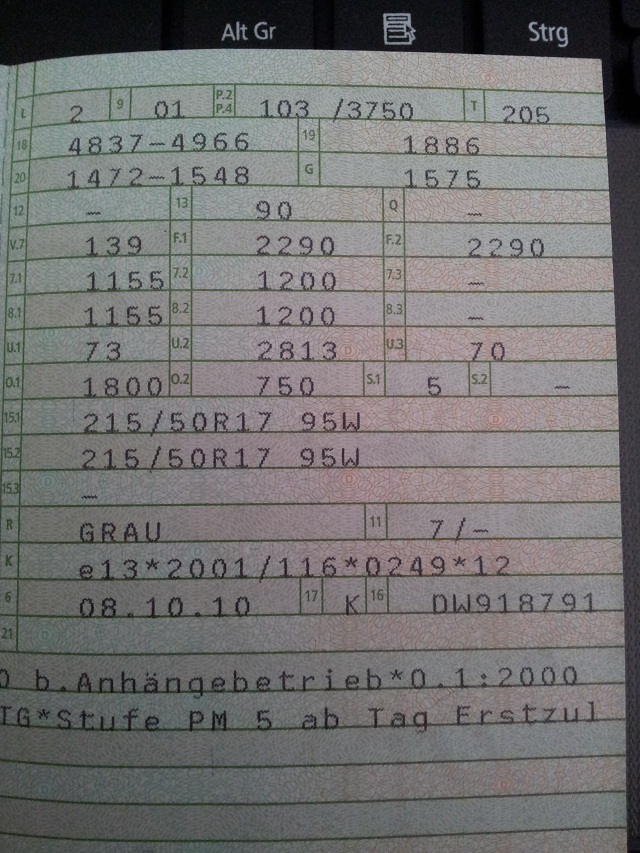 Alt Gr Strg
L 2 9 01 P.2 P.4 103 /3750 T 205
18 4837-4966 19 1886
20 1472-1548 G 1575
12 - 13 90 Q -
V.7 139 F.1 2290 F.2 2290
7.1 1155 7.2 1200 7.3 -
8.1 1155 8.2 1200 8.3 -
U.1 73 U.2 2813 U.3 70
O.1 1800 O.2 750 S.1 5 S.2 -
15.1 215/50R17 95W
15.2 215/50R17 95W
15.3 -
R GRAU 11 7/-
K e13*2001/116*0249*12
6 08.10.10 17 K 16 DW918791
21
0 b.Anhängebetrieb*O.1:2000
TG*Stufe PM 5 ab Tag Erstzul